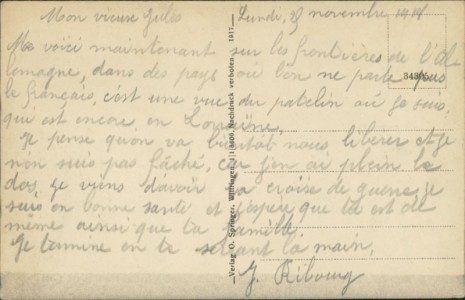 Mon vieux Jules Lundi, novembre 1918
Me voici maintenant sur les frontières de l'Al
lemagne, dans des pays où l'on ne parle pas
le français, c'est une vue du patelin où je suis,
qui est encore en Lorraine.
Je pense qu'on va bientôt nous libérer et je
n'en suis pas fâché, car j'en ai plein le
dos, je viens d'avoir la croix de guerre, je
suis en bonne santé et j'espère que tu est de
même ainsi que ta famille.
Je termine en te serrant la main.
J.
Verlag O. Springer, Nachdruck verboten. 1917